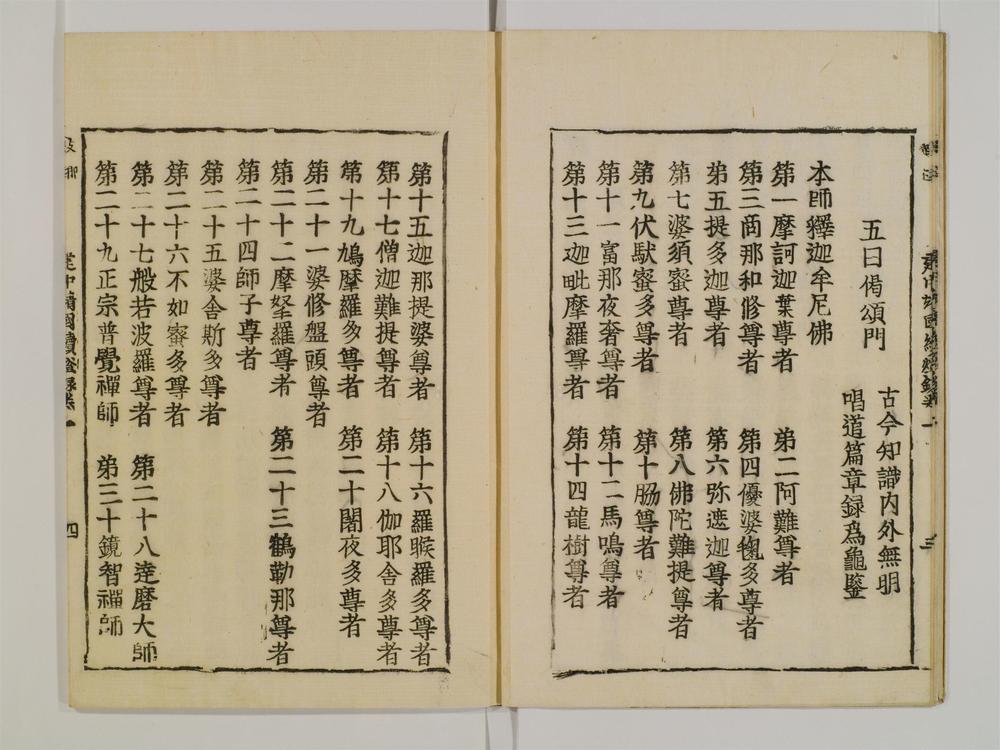 五曰偈頌門
古今知識内外無明
唱道篇章録爲龜鑒
本師釋迦牟尼佛
第一摩訶迦葉尊者 弟二阿難尊者
第三商那和修尊者 第四優婆毱多尊者
弟五提多迦尊者 第六弥遮迦尊者
第七婆須蜜尊者 第八佛陀難提尊者
第九伏馱蜜多尊者 第十脇尊者
第十一富那夜奢尊者 第十二馬鳴尊者
第十三迦毗摩羅尊者 第十四龍樹尊者
三
第十五迦那提婆尊者 第十六羅睺羅多尊者
第十七僧迦難提尊者 第十八伽耶舍多尊者
第十九鳩摩羅多尊者 第二十闍夜多尊者
第二十一婆修盤頭尊者
第二十二摩拏羅尊者 第二十三鶴勒那尊者
第二十四師子尊者
第二十五婆舍斯多尊者
第二十六不如蜜多尊者
第二十七般若波羅尊者 第二十八達磨大師
第二十九正宗普覺禪師 弟三十鏡智禪師
四